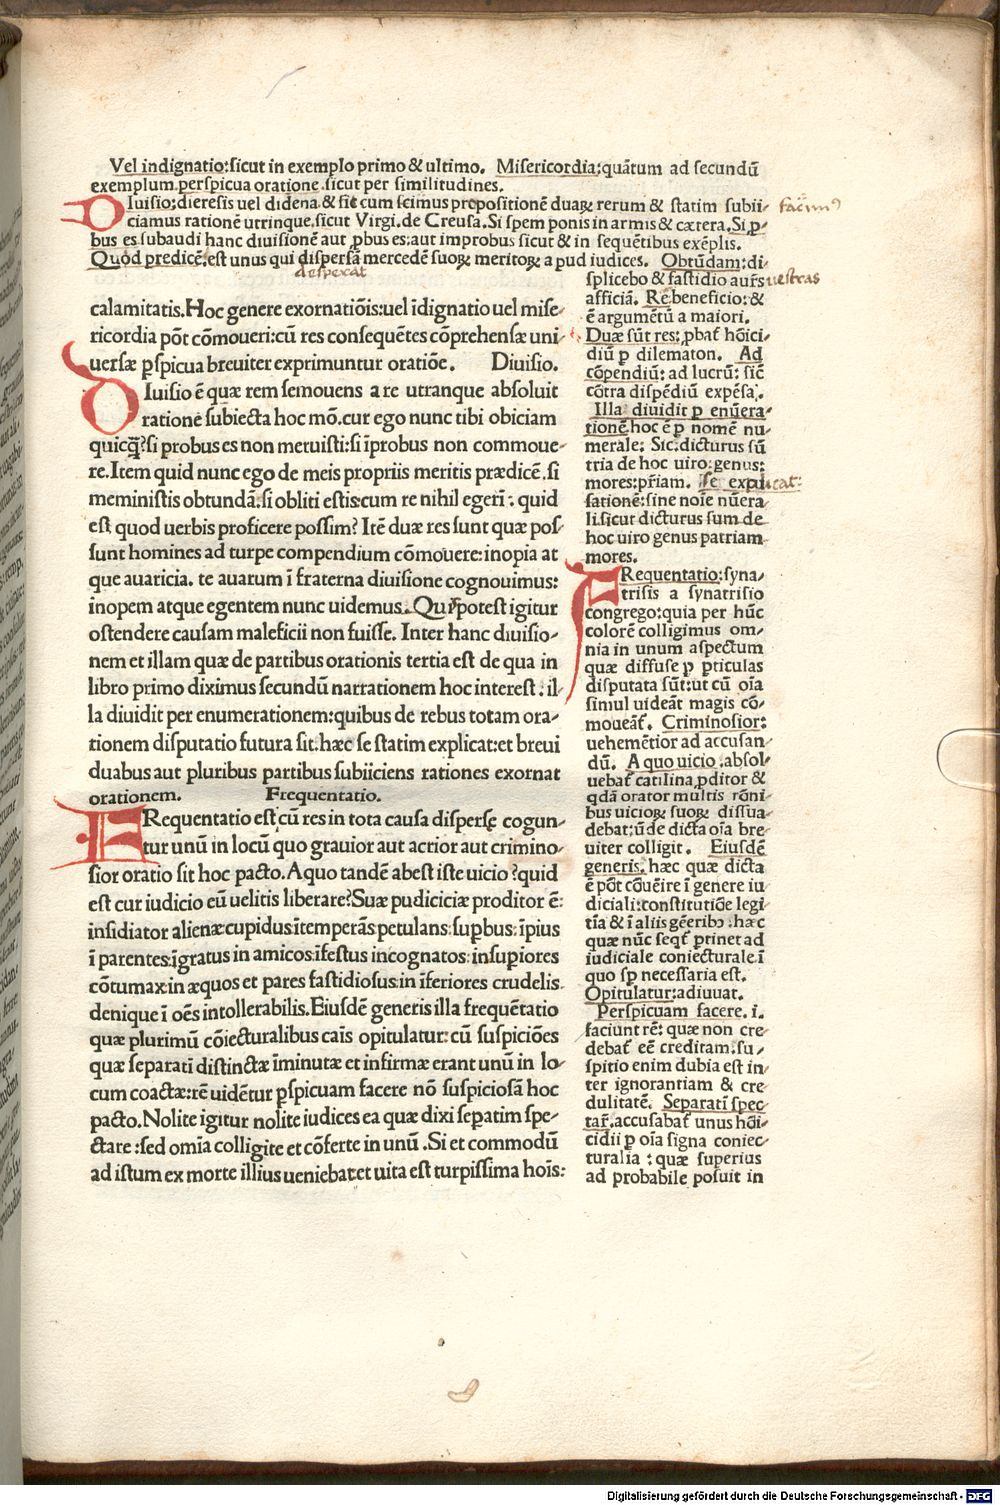 Vel indignatio:sicut in exemplo primo & ultimo. Misericordia:quãtum ad secundũ
exemplum.perspicua oratione.sicut per similitudines.
DIuisio:dieresis uel didena.& fit cum scimus propositionẽ duaꝝ rerum & statim subii-
ciamus rationẽ utrinque.sicut Virgi.de Creusa.Si spem ponis in armis & cætera.Si ꝓ-
bus es subaudi hanc diuisionẽ aut ꝓbus es:aut improbus sicut & in sequẽtibus exẽplis.
Quod predicẽ.est unus qui dispersã mercedẽ suoꝝ meritoꝝ a pud iudices. Obtũdam:di-
desperat
calamitatis.Hoc genere exornatiõis:uel ĩdignatio uel mise-
ricordia põt cõmoueri:cũ res consequẽtes cõprehensæ uni-
uersæ ꝑspicua breuiter exprimuntur oratiõe. Diuisio.
DIuisio ẽ quæ rem semouens a re utranque absoluit
rationẽ subiecta hoc mõ.cur ego nunc tibi obiciam
quicꝗ̃?si probus es non meruisti:si ĩprobus non commoue-
re.Item quid nunc ego de meis propriis meritis prædicẽ.si
meministis obtundã.si obliti estis:cum re nihil egeri: quid
est quod uerbis proficere possim? Itẽ duæ res sunt quæ pos-
sunt homines ad turpe compendium cõmouere:inopia at
que auaricia. te auarum ĩ fraterna diuisione cognouimus:
inopem atque egentem nunc uidemus. Qui potest igitur
ostendere causam maleficii non fuisse. Inter hanc diuisio-
nem et illam quæ de partibus orationis tertia est de qua in
libro primo diximus secundũ narrationem hoc interest. il-
la diuidit per enumerationem:quibus de rebus totam ora-
tionem disputatio futura sit.hæc se statim explicat:et breui
duabus aut pluribus partibus subiiciens rationes exornat
orationem. Frequentatio.
FRequentatio est cũ res in tota causa dispersę cogun-
tur unũ in locũ quo grauior aut acrior aut crimino-
sior oratio sit hoc pacto.A quo tandẽ abest iste uicio?quid
est cur iudicio eũ uelitis liberare?Suæ pudiciciæ proditor ẽ:
insidiator alienæ:cupidus:ĩtemperãs:petulans:suꝑbus:ĩpius
ĩ parentes:ĩgratus in amicos:ĩfestus incognatos:insuꝑiores
cõtumax:in æquos et pares fastidiosus:in ĩferiores crudelis.
denique ĩ oẽs intollerabilis.Eiusdẽ generis illa frequẽtatio
quæ plurimũ cõiecturalibus caĩs opitulatur:cũ suspiciões
quæ separatĩ distinctæ ĩminutæ et infirmæ erant unũ in lo-
cum coactæ:rẽ uidẽtur ꝑspicuam facere nõ suspiciosã hoc
pacto.Nolite igitur nolite iudices ea quæ dixi seꝑatim spe-
ctare:sed omĩa colligite et cõferte in unũ.Si et commodũ
ad istum ex morte illius ueniebat:et uita est turpissima hoĩs:
splicebo & fastidio aures uestras
afficiã. Re:beneficio:&
ẽ argumẽtũ a maiori.
Duæ sũt res:ꝓbat̃ hõici-
diũ ꝑ dilematon. Ad
cõpendiũ:ad lucrũ:sic̃
cõtra dispẽdiũ expẽsa.
Illa diuidit ꝑ enũera-
tionẽ hoc ẽ ꝑ nomẽ nu-
merale: Sic.dicturus sũ
tria de hoc uiro:genus:
mores:pr̃iam. Se explicat:
sationẽ:sine noĩe nũera-
li.sicut dicturus sum de
hoc uiro genus patriam
mores.
FRequentatio:syna-
trisis a synatrisio
congrego:quia per hũc
colorẽ colligimus om-
nia in unum aspectum
quæ diffuse ꝑ ꝑticulas
disputata sũt:ut cũ oĩa
simul uideãt magis cõ-
moueat̃. Criminosior:
uehemẽtior ad accusan-
dũ. A quo uicio.absol-
uebat̃ catilina ꝓditor &
qdã orator multis rõni-
bus uicioꝝ suoꝝ dissua-
debat:ũde dicta oĩa bre-
uiter colligit. Eiusdẽ
generis.hæc quæ dicta
ẽ põt cõuẽire ĩ genere iu-
diciali:constitutiõe legi-
tĩa & ĩ aliis gẽeribꝫ.hæc
quæ nũc seqt̃ ꝑtinet ad
iudiciale coniecturale.ĩ
quo sꝑ necessaria est.
Opitulatur:adiuuat.
Perspicuam facere. i.
faciunt rẽ: quæ non cre-
debat̃ eẽ creditam.su-
spitio enim dubia est in-
ter ignorantiam & cre-
dulitatẽ. Separatĩ spec-
tar̃.accusabat̃ unus hõi-
cidii ꝑ oĩa signa coniec-
turalĩa : quæ superius
ad probabile posuit in
Digitalisierung gefördert durch die Deutsche Forschungsgemeinschaft - DFG